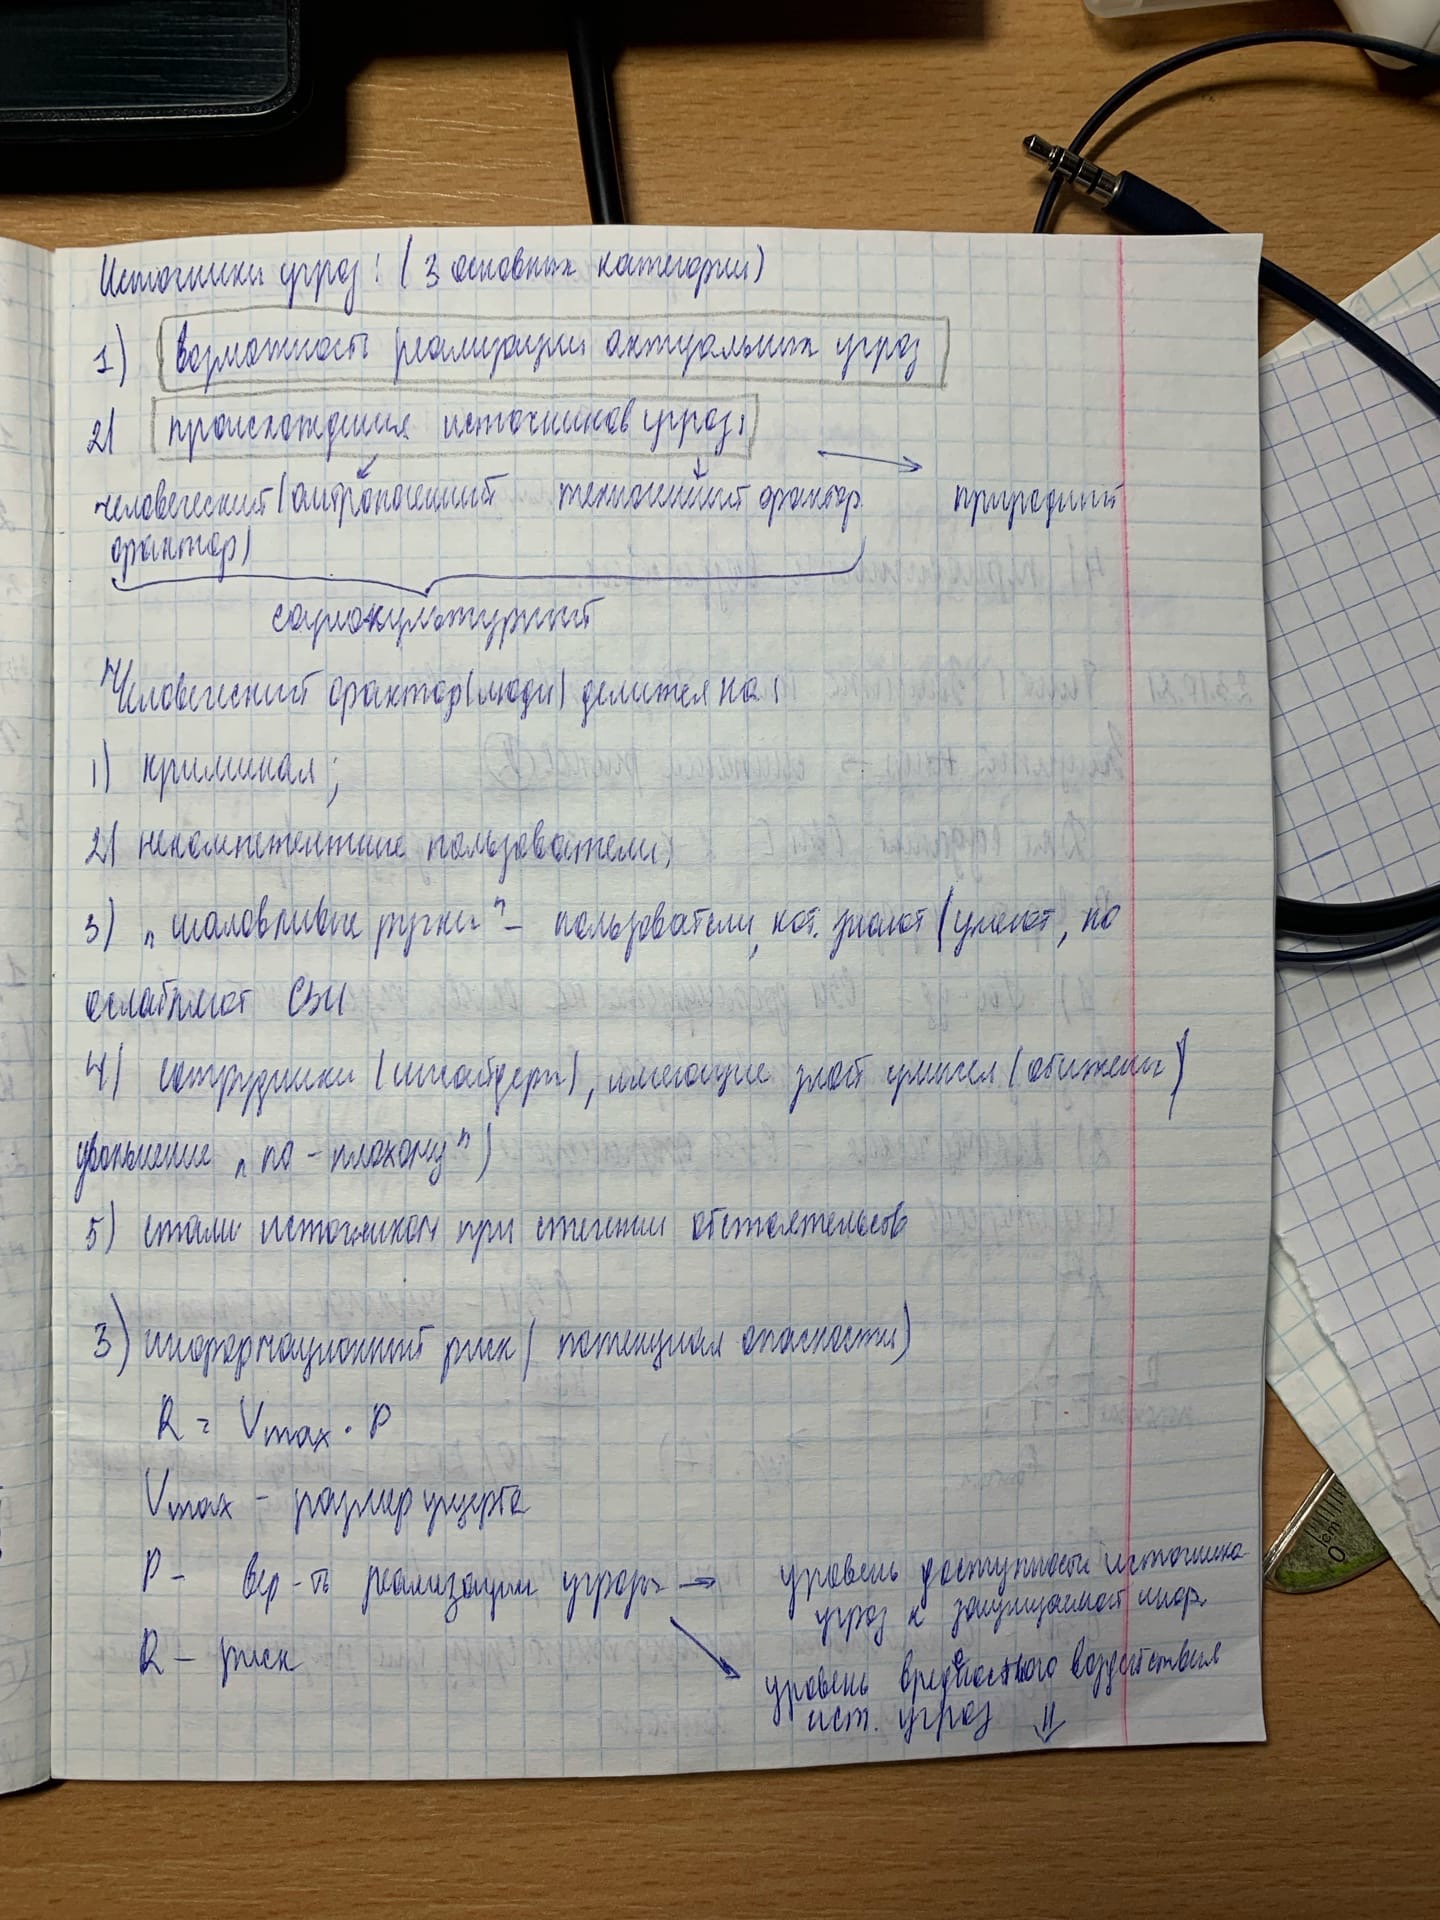 Источники угроз: (3 основных категории)
1) возможность реализации актуальных угроз
2) происхождения источников угроз:
человеческий (антропогенный техногенный фактор природный
фактор)
социокультурный
Человеческий фактор (люди) делится на:
1) криминал;
2) некомпетентные пользователи;
3) „шаловливые ручки" – пользователи, кот. знают (умеют, но
ослабляют СЗИ
4) сотрудники (инсайдеры), имеющие злой умысел (обижены)
увольнение „по-плохому")
5) стали источником при стечении обстоятельств
3) информационный риск (потенциал опасности)
R = Vmax · P
Vmax – размер ущерба
P – вер-ть реализации угрозы → уровень доступности источника
угроз к защищаемой инф.
R – риск
уровень вредоносного воздействия
ист. угроз ⇓
0 cm